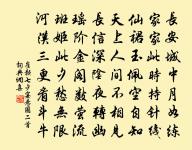 長安城中月如練
家家此時持針線
仙裙玉佩空自知
天上人間不相見
長信深陰夜轉幽
瑤階金閣數螢流
班姬此夕愁無限
河漢三更看斗牛
崔顥七夕宴懸圃二首
詞典網